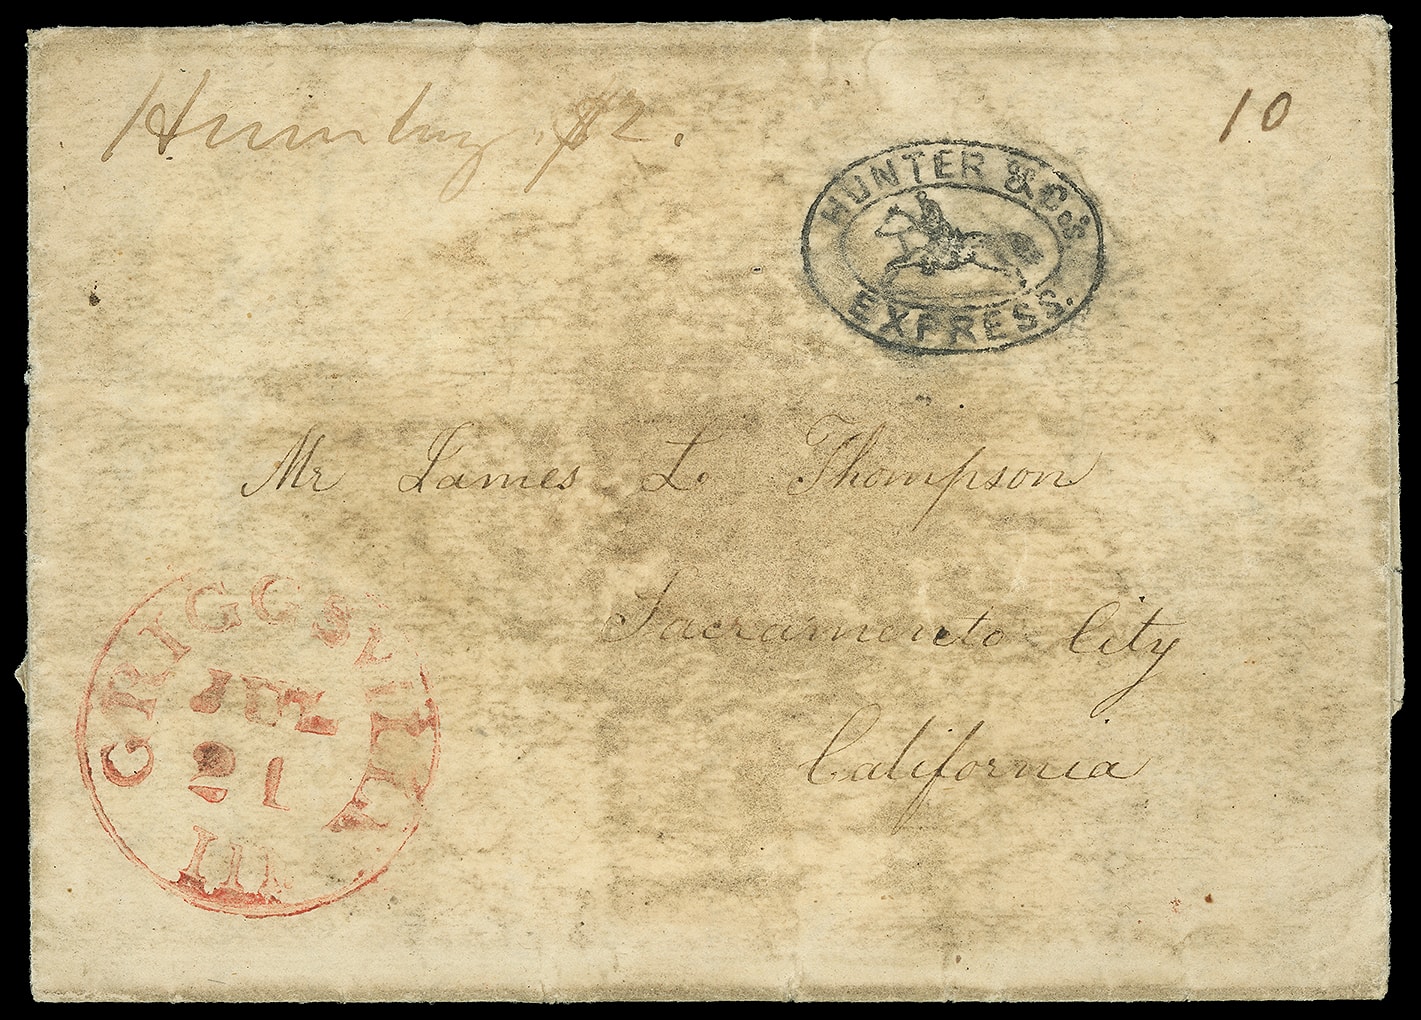 Humbug. $2.
10
HUNTER & Co's
EXPRESS.
Mr James L. Thompson
Sacramento City
California
GRIGGSVILLE
JUL
21
Ill